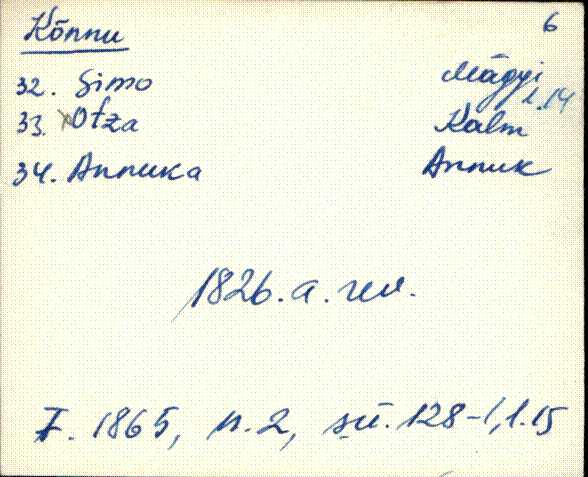 Kõnnu 6
32. Simo Mägyi
l. 14
33. Otza Kalm
34. Annuka Annuk
1826. a. rev.
F. 1865, n. 2, sü. 128-1, l. 15